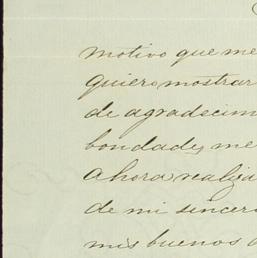 motivo que me
quiero mostrar
de agradecim
bondades, me
Ahora realiza
de mi sincer
mis buenos d